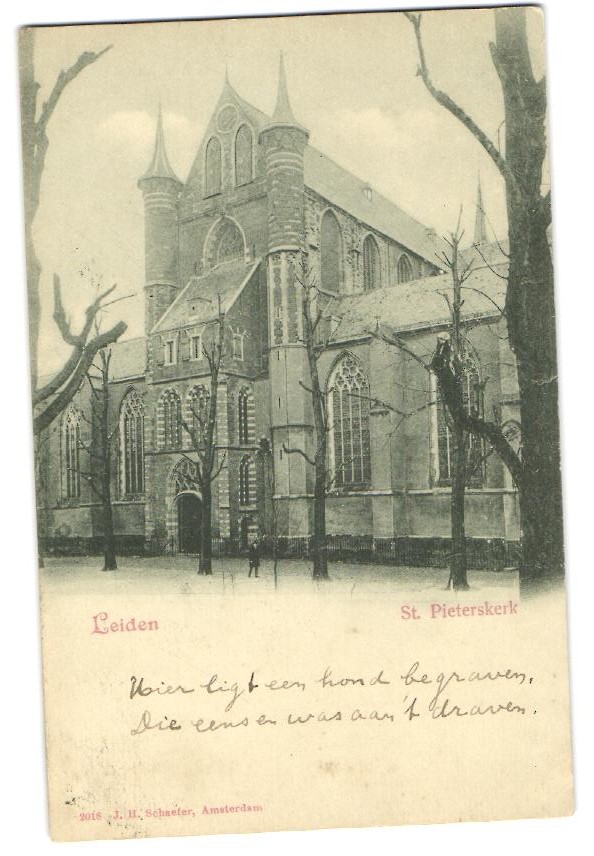 Leiden
St. Pieterskerk
Hier ligt een hond begraven,
Die eens en was aan't draven.
2016 J. H. Schaefer, Amsterdam